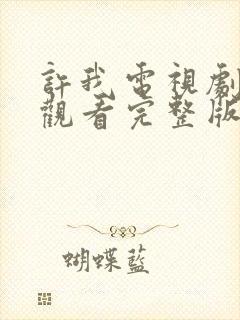 許我電視劇
觀看完整版
蝴蝶藍